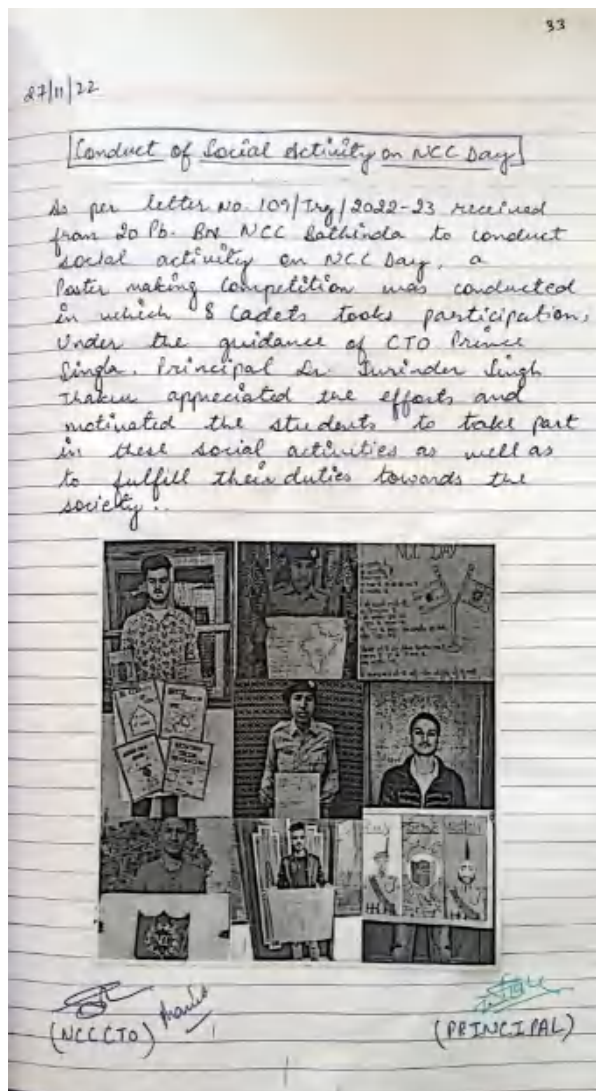 33
27/11/22
Conduct of Social Activity on NCC Day
As per letter No. 109/Trg/2022-23 received
from 20 Pb. Bn NCC Bathinda to conduct
social activity on NCC Day, a
Poster making Competition was conducted
in which 8 Cadets tooks participation,
Under the guidance of CTO Prince
Singla. Principal Dr. Surinder Singh
Thakur appreciated the efforts and
motivated the students to take part
in these social activities as well as
to fulfill their duties towards the
society..
NCC DAY
(NCC CTO)
(PRINCIPAL)